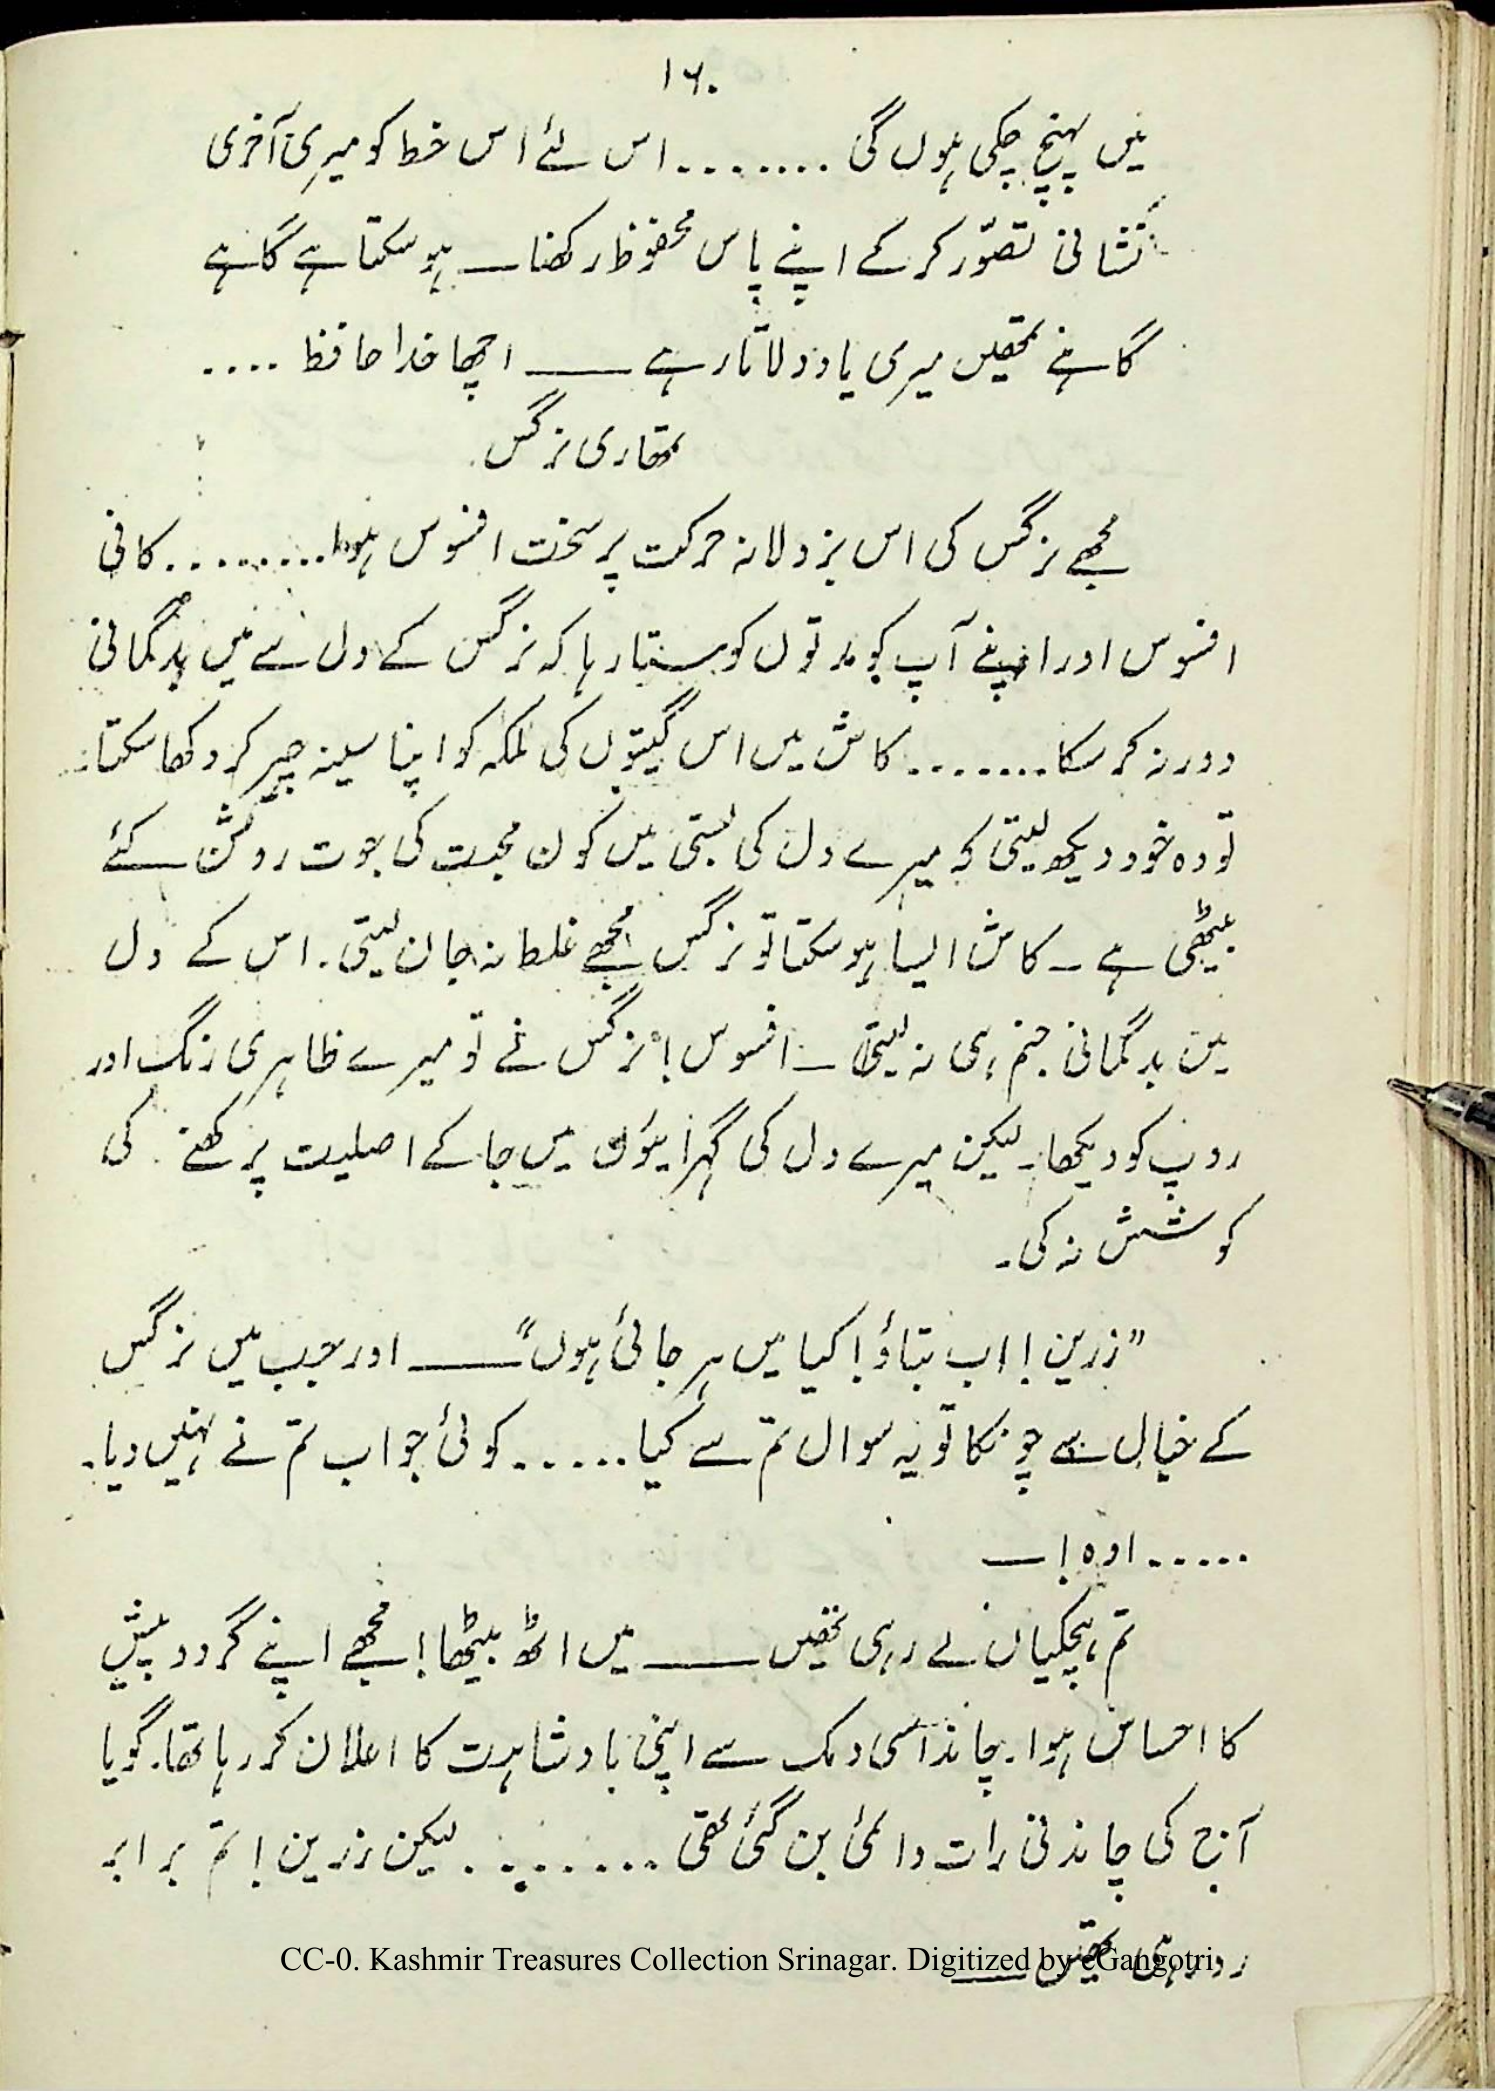 ۱۶۰
میں پہنچ چکی ہوں گی ........ اس لئے اس خط کو میری آخری
نشانی تصوّر کر کے اپنے پاس محفوظ رکھنا ـــ ہو سکتا ہے گاہے
گاہے تمھیں میری یاد دلاتا رہے ـــــ اچھا خدا حافظ ....
تمھاری نرگس
مجھے نرگس کی اس بزدلانہ حرکت پر سخت افسوس ہوا......... کافی
افسوس اور اپنے آپ کو مدتوں کوستا رہا کہ نرگس کے دل سے میں بدگمانی
دور نہ کر سکا....... کاش میں اس گیتوں کی ملکہ کو اپنا سینہ چیر کر دکھا سکتا۔
تو وہ خود دیکھ لیتی کہ میرے دل کی بستی میں کون محبت کی جوت روشن کئے
بیٹھی ہے ــ کاش ایسا ہو سکتا تو نرگس مجھے غلط نہ جان لیتی۔ اس کے دل
میں بدگمانی جنم ہی نہ لیتی ــ افسوس! نرگس نے تو میرے ظاہری رنگ اور
روپ کو دیکھا۔ لیکن میرے دل کی گہرائیوں میں جا کے اصلیت پرکھنے کی
کوشش نہ کی۔
”زرین! اب بتاؤ! کیا میں ہرجائی ہوں“ ـــــ اور جب میں نرگس
کے خیال سے چونکا تو یہ سوال تم سے کیا...... کوئی جواب تم نے نہیں دیا۔
..... اوہ! ــ
تم ہچکیاں لے رہی تھیں ـــــ میں اٹھ بیٹھا! مجھے اپنے گرد و پیش
کا احساس ہوا۔ چاند اسی دمک سے اپنی بادشاہت کا اعلان کر رہا تھا۔ گویا
آج کی چاندنی رات دائمی بن گئی تھی ........ لیکن زرین! تم برابر
رو رہی تھیں ـــــ
CC-0. Kashmir Treasures Collection Srinagar. Digitized by eGangotri